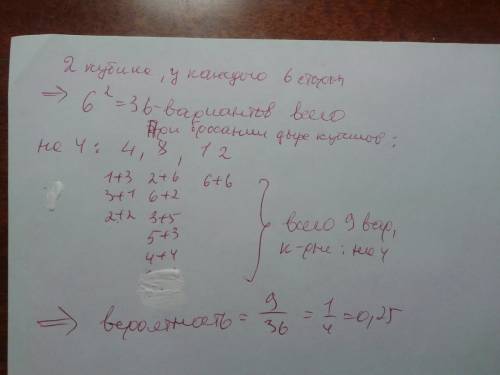 2 кубика, у каждого 6 сторон
=> 6² = 36 - вариантов всего
При бросании двух кубиков:
на 4: 4, 8, 12
1+3 2+6 6+6
3+1 6+2
2+2 3+5
5+3
4+4
всего 9 вар,
к-рые : на 4
=> вероятность = 9/36 = 1/4 = 0,25